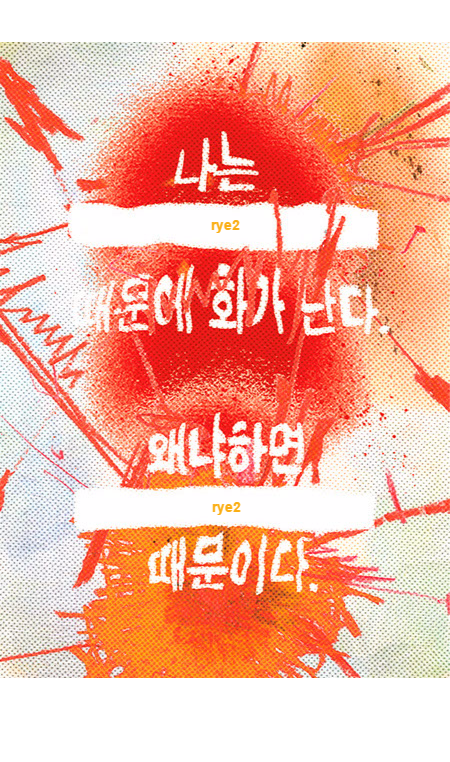 나는
rye2
때문에 화가 난다.
왜냐하면
rye2
때문이다.